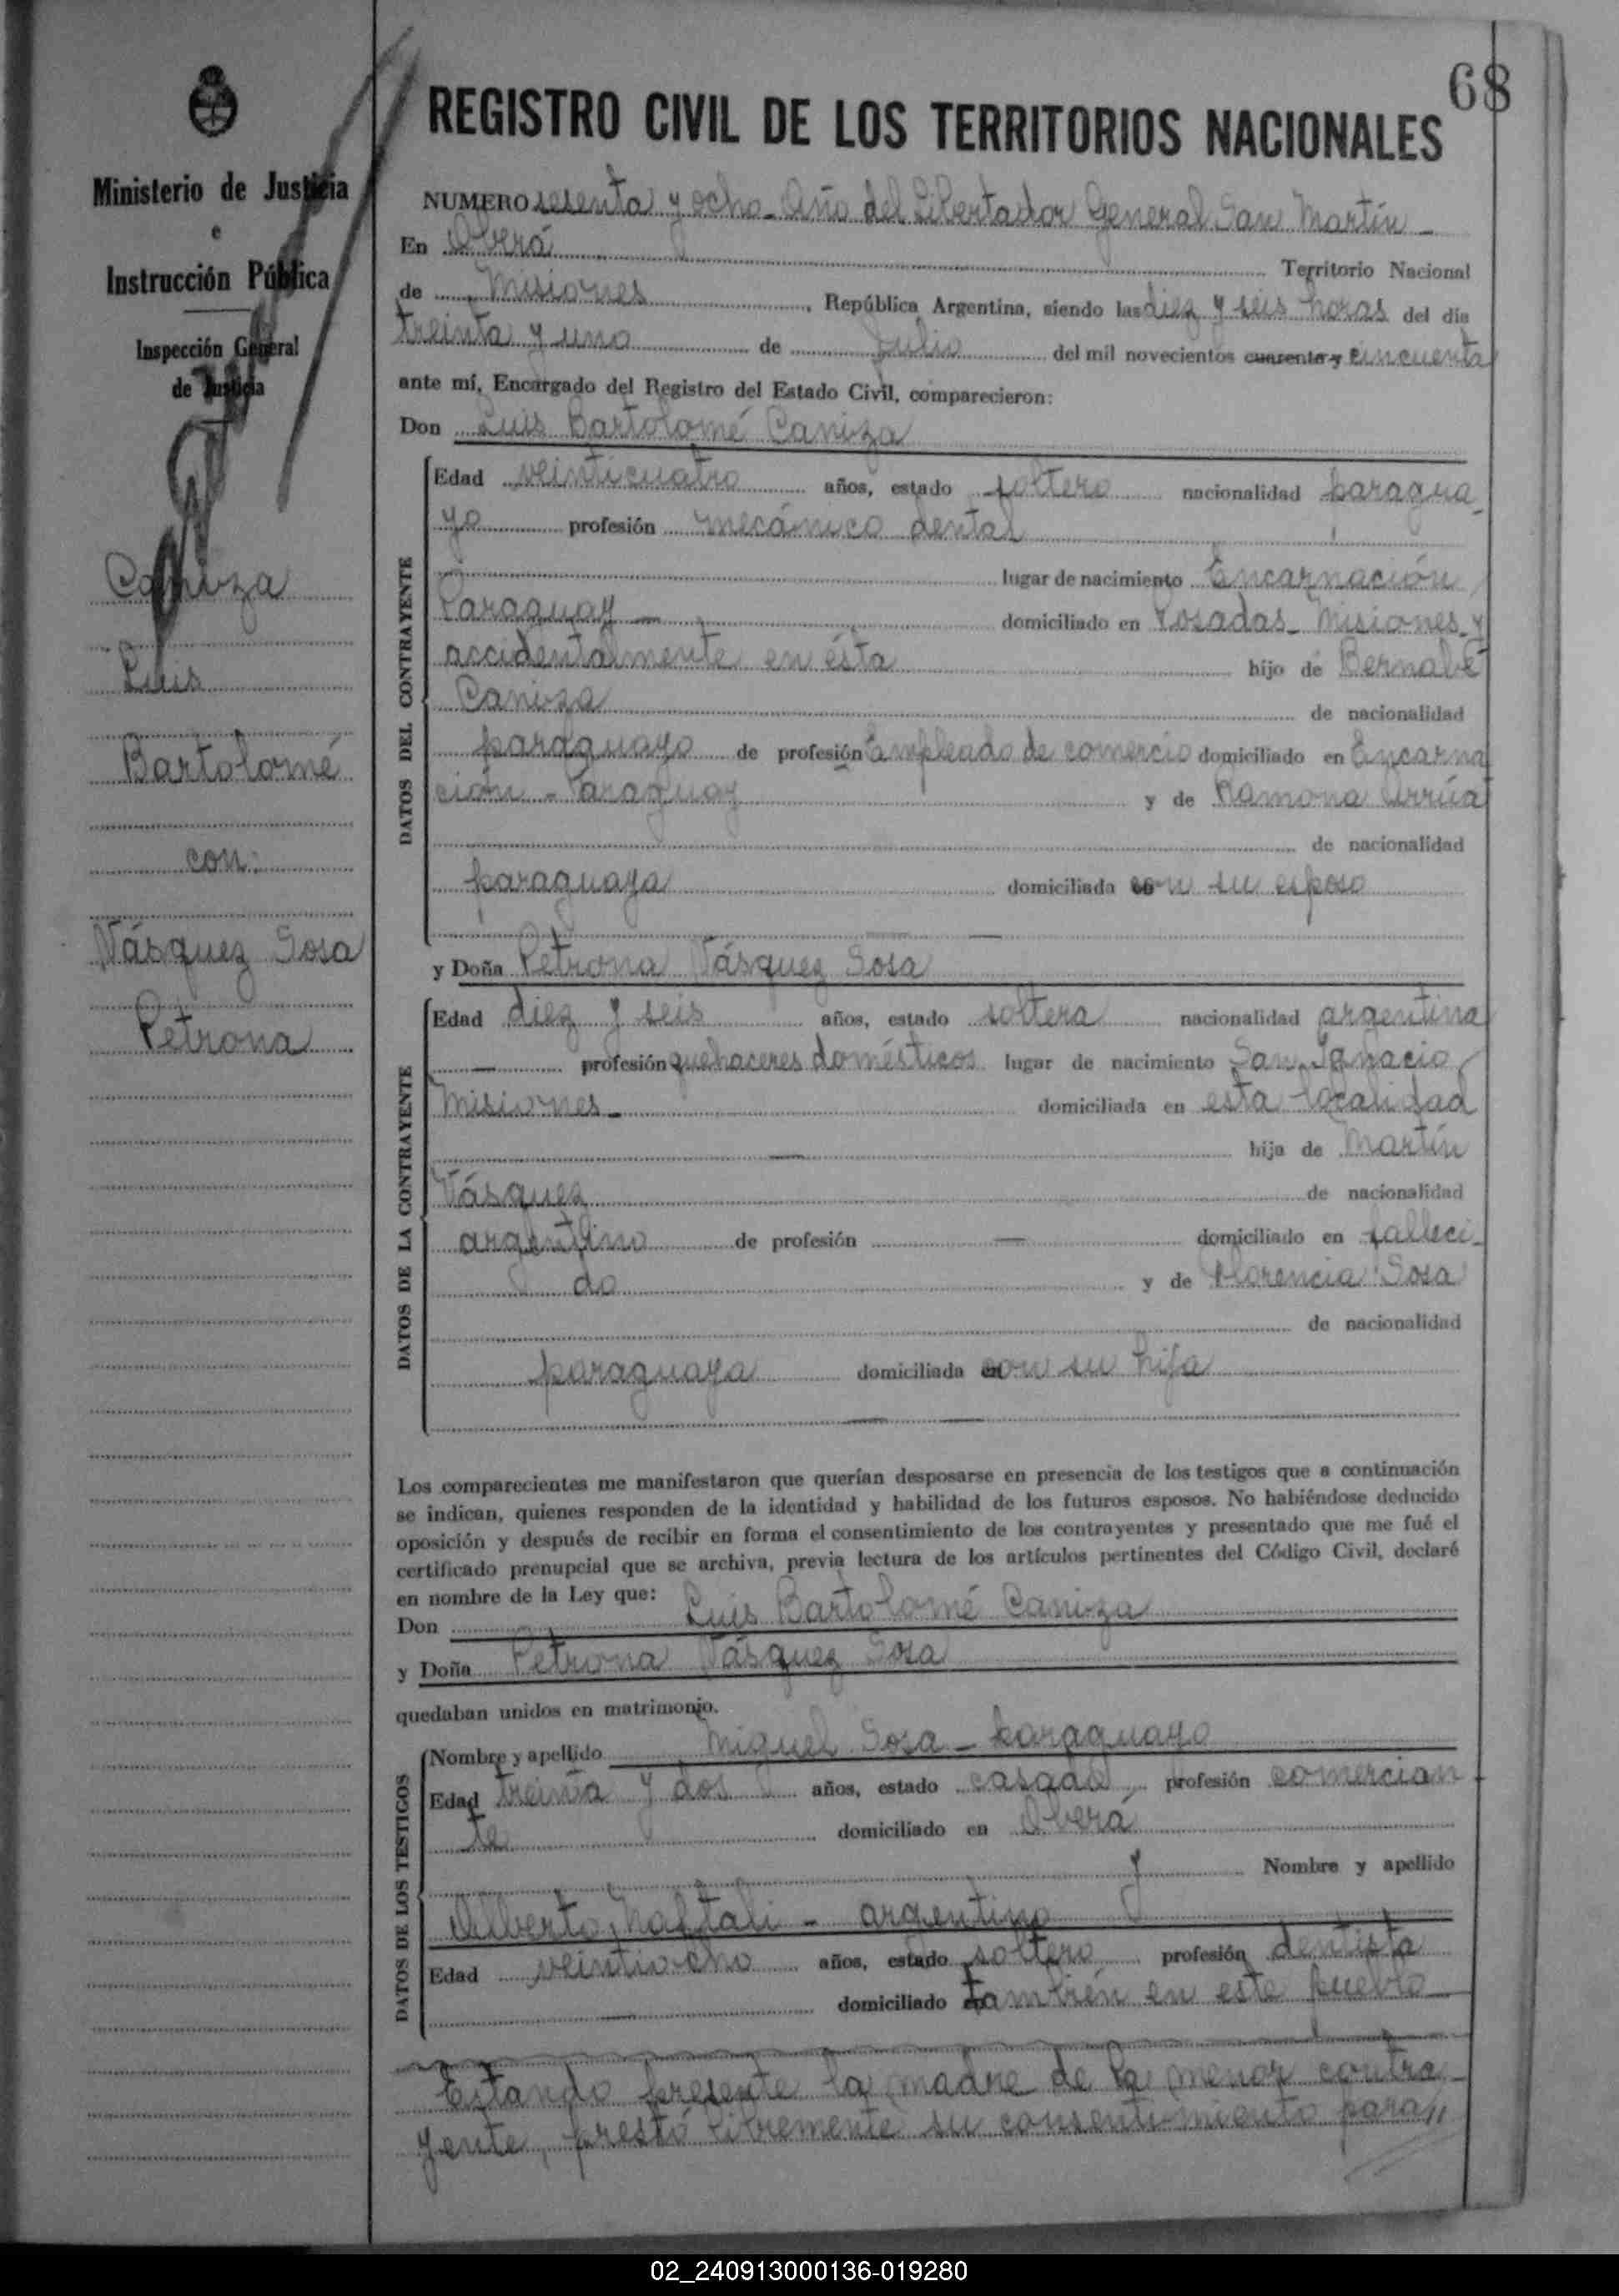 68
Ministerio de Justicia
e
Instrucción Pública
Inspección General
de Justicia
Caniza
Luis
Bartolomé
con:
Vásquez Sosa
Petrona
REGISTRO CIVIL DE LOS TERRITORIOS NACIONALES
NUMERO sesenta y ocho - Año del Libertador General San Martín -
En Oberá Territorio Nacional
de Misiones, República Argentina, siendo las diez y seis horas del día
treinta y uno de Julio del mil novecientos cuarenta y cincuenta
ante mí, Encargado del Registro del Estado Civil, comparecieron:
Don Luis Bartolomé Caniza
DATOS DEL CONTRAYENTE
Edad veinticuatro años, estado soltero nacionalidad paragua-
yo profesión mecánico dental
lugar de nacimiento Encarnación
Paraguay - domiciliado en Posadas - Misiones y
accidentalmente en ésta hijo de Bernabé
Caniza de nacionalidad
paraguayo de profesión Empleado de comercio domiciliado en Encarna
ción - Paraguay y de Ramona Arrúa
de nacionalidad
paraguaya domiciliada con su esposo
y Doña Petrona Vásquez Sosa
DATOS DE LA CONTRAYENTE
Edad diez y seis años, estado soltera nacionalidad argentina
- profesión quehaceres domésticos lugar de nacimiento San Ignacio
Misiones - domiciliada en esta localidad
- hija de Martín
Vásquez de nacionalidad
argentino de profesión - domiciliado en falleci-
do y de Florencia Sosa
de nacionalidad
paraguaya domiciliada con su hija
Los comparecientes me manifestaron que querían desposarse en presencia de los testigos que a continuación
se indican, quienes responden de la identidad y habilidad de los futuros esposos. No habiéndose deducido
oposición y después de recibir en forma el consentimiento de los contrayentes y presentado que me fué el
certificado prenupcial que se archiva, previa lectura de los artículos pertinentes del Código Civil, declaré
en nombre de la Ley que:
Don Luis Bartolomé Caniza
y Doña Petrona Vásquez Sosa
quedaban unidos en matrimonio.
DATOS DE LOS TESTIGOS
Nombre y apellido Miguel Sosa - paraguayo
Edad treinta y dos años, estado casado profesión comercian
te domiciliado en Oberá
y Nombre y apellido
Alberto Naftali - argentino
Edad veintiocho años, estado soltero profesión dentista
domiciliado también en este pueblo
Estando presente la madre de la menor contra-
yente, prestó libremente su consentimiento para//
02_240913000136-019280